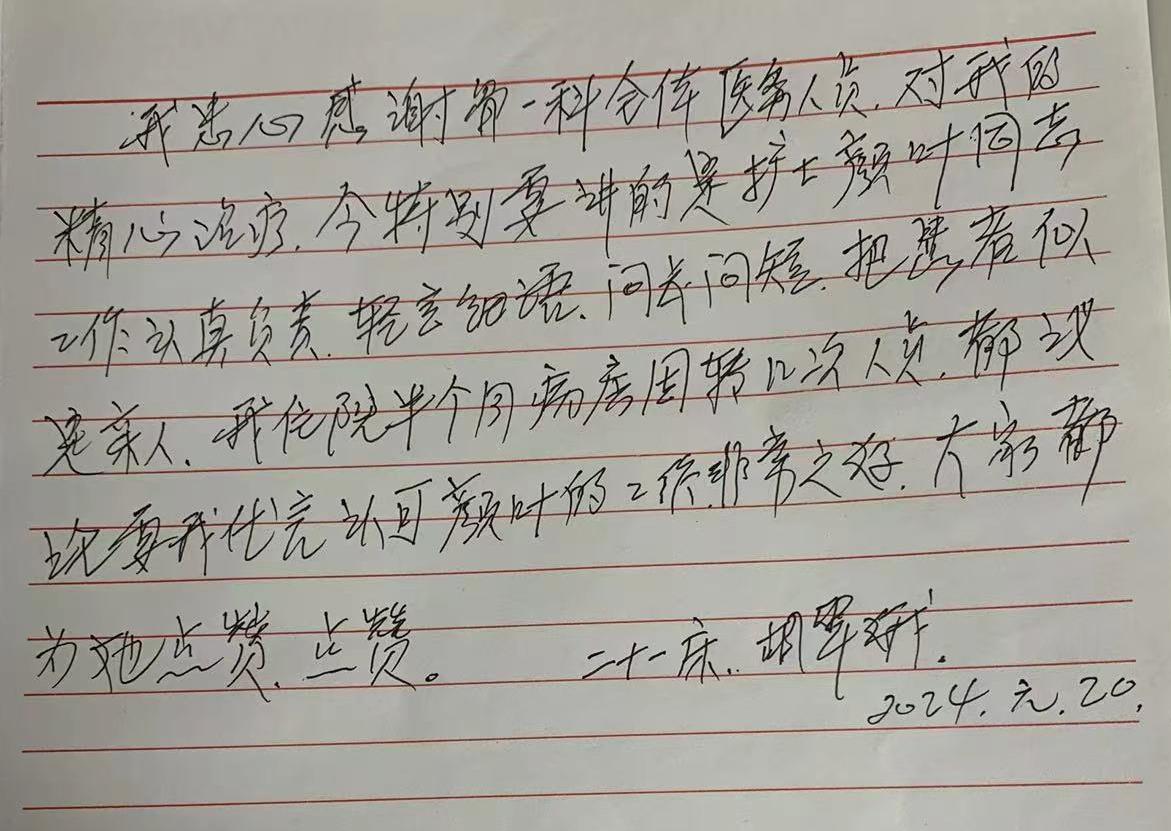 我忠心感谢骨一科全体医务人员.对我的
精心治疗.今特别要讲的是护士颜叶同志
工作认真负责.轻言细语.问长问短.把患者似
是亲人.我住院半个月病房周转几次人员.都议
论要我代言认可颜叶的工作非常之好.大家都
为她点赞.点赞。 二十一床..胡军
2024.元.20.